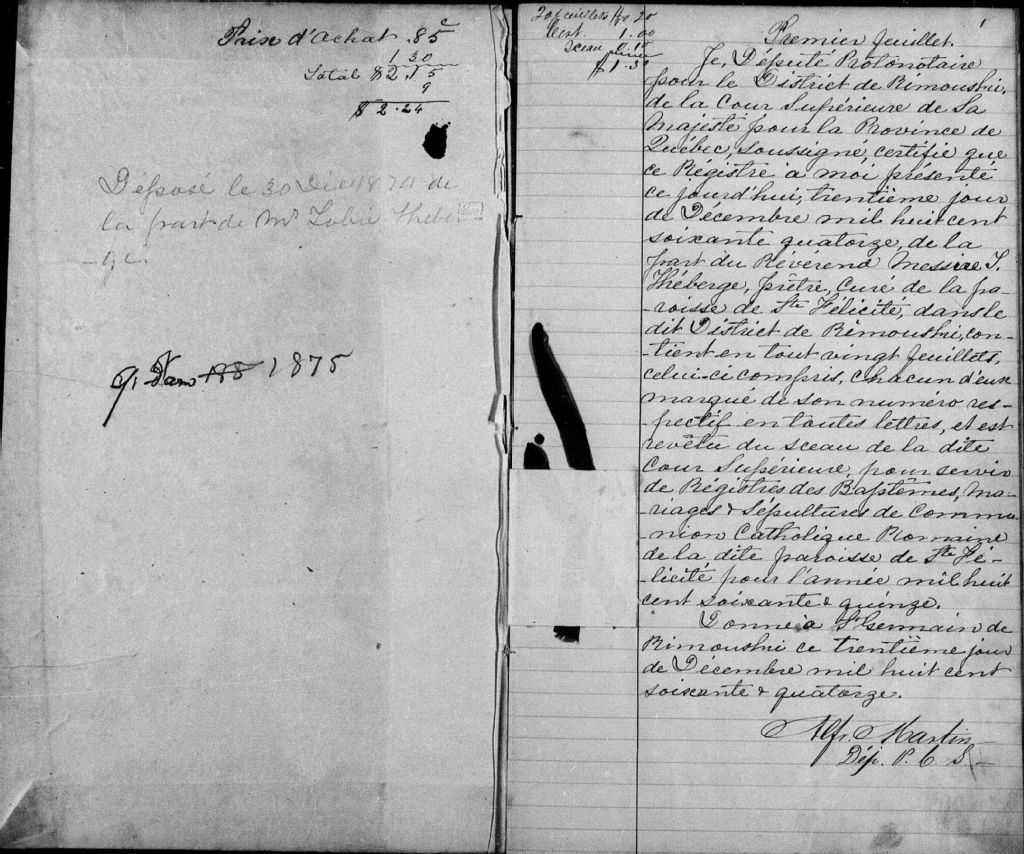 Prix d'achat .85c
1 30
Total $2.15
9
$2.24
Déposé le 30 Déc 1874 de
la part de Mr Tobie Théber
-ge.
9, Jan 1875
20 feuillets 0.20
Cert. 1.00
Sceau 0.10
$1.30
1
Premier feuillet.
Je, Député Protonotaire
pour le District de Rimouski,
de la Cour Supérieure de Sa
Majesté pour la Province de
Québec, soussigné, certifie que
ce Régistre à moi présenté
ce jourd'hui, trentième jour
de Décembre mil huit cent
soixante quatorze, de la
part du Révérend Messire T.
Théberge, prêtre, curé de la pa-
-roisse de Ste Félicité, dans le
dit District de Rimouski, con-
-tient en tout vingt feuillets,
celui-ci compris, chacun d'eux
marqué de son numéro res-
-pectif en toutes lettres, et est
revêtu du sceau de la dite
Cour Supérieure, pour servir
de Régistres des Baptêmes, Ma-
-riages & Sépultures de Commu-
-nion Catholique Romaine
de la dite paroisse de Ste Fé-
-licité pour l'année mil huit
cent soixante & quinze.
Donné à St Germain de
Rimouski ce trentième jour
de Décembre mil huit cent
soixante & quatorze.
Alfr. Martin
Dép. P. C. S.